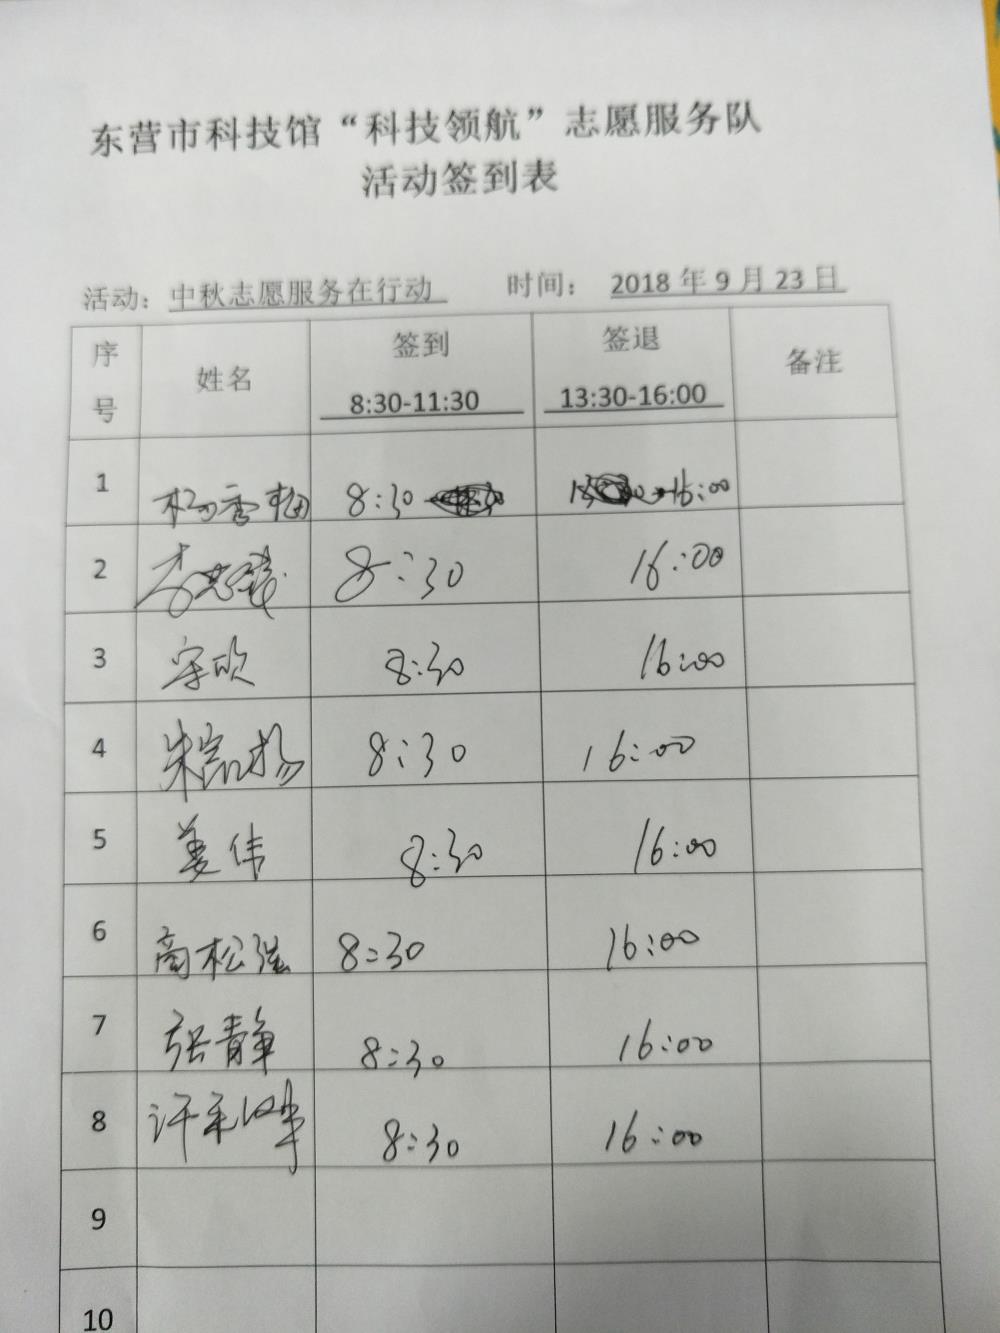 东营市科技馆“科技领航”志愿服务队
活动签到表
活动：中秋志愿服务在行动 时间： 2018 年 9 月 23 日
序号 姓名 签到 8:30-11:30 签退 13:30-16:00 备注
1 8:30 16:00
2 8:30 16:00
3 宋欣 8:30 16:00
4 朱凯杨 8:30 16:00
5 姜伟 8:30 16:00
6 商松强 8:30 16:00
7 张青 8:30 16:00
8 许 8:30 16:00
9
10